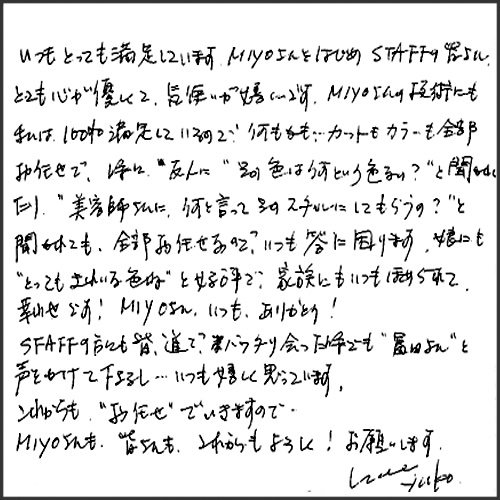 いつもとっても満足しています。MIYOさんをはじめSTAFFの皆さん、
とても心が優しくて、気使いが嬉しいです。MIYOさんの技術にも
私は、100%満足しているので、何もかも…カットもカラーも全部
お任せで、時に、"友人に"その色は何という色なの?"と聞かれ
たり、"美容師さんに、何と言ってそのスタイルにしてもらうの?"と
聞かれても、全部お任せなので、いつも答に困ります。娘にも
"とってもきれいな色ね"と好評で、家族にもいつもほめられて、
幸せです!MIYOさん、いつも、ありがとう!
STAFFの方にも皆、道で、バッタリ会った時でも"富田さん"と
声をかけて下さるし…いつも嬉しく思っています。
これからも、"お任せ"でいきますので…
MIYOさんも、皆さんも、これからもよろしく!お願いします。